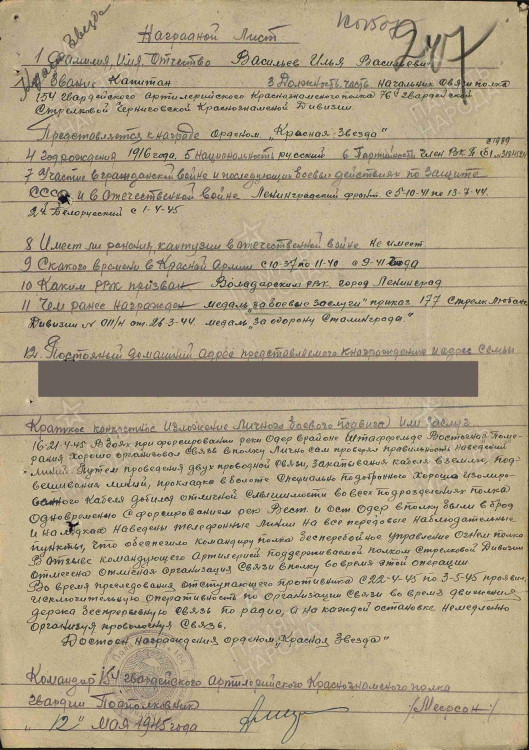 Наградной Лист
247
Красн. Звезда
1 Фамилия, Имя, Отчество Васильев Илья Васильевич
Звание Капитан 3 Должность, часть Начальник связи полка
154 гвардейского Артиллерийского Краснознаменного полка 76й гвардейской
Стрелковой Черниговской Краснознаменной Дивизии
Представляется к награде Орденом "Красная Звезда"
4 год рождения 1916 года, 5 Национальность русский 6 Партийность член ВКП(б)
7 Участие в гражданской войне и последующих боевых действиях по защите
СССР и в отечественной войне Ленинградский фронт. с 5-10-41 по 13-7-44.
2й Белорусский с 1-4-45
8 Имеет ли ранения, контузии в отечественной войне не имеет
9 С какого времени в Красной Армии с 10-37 по 11-40 с 9-41 года
10 Каким РВК призван Володарским РВК город Ленинград
11 Чем ранее награжден медаль "за боевые заслуги" приказ 177 Стрелк Любанс
Дивизии № 011/н от 26-3-44. медаль "За оборону Сталинграда."
12. Постояный домашний адрес представляемого к награждению и адрес семьи
Краткое конкретное изложение личного боевого подвига или заслуг
16-21-4-45 В боях при форсировании реки Одер в районе Штаффельде Восточной Поме-
рания хорошо организовал связь в полку Лично сам проверял правильность наведения
линий Путем проведения двух проводной связи, закапывания кабеля в землю, под-
вешивания линий, прокладке в болоте специально подобранного хорошо изолиро-
ванного кабеля добился отличной слышимости во всех подразделениях полка
Одновременно с форсированием рек Вест. и Ост Одер в полку были в брод
и на лодках наведены телефонные линии на все передовые наблюдательные
пункты, что обеспечило командиру полка бесперебойное управление огнем полка
В отзыве командующего Артилерией поддерживаемой полком Стрелковой Дивизии
отмечена отличная организация связи в полку во время этой операции
Во время преследования отступающего противника с 22-4-45 по 3-5-45 проявил
исключительную оперативность по организации связи во время движения
держа беспрерывную связь по радио, а на каждой остановке немедленно
организуя проволочную связь.
Достоен награждения орденом "Красная Звезда"
Командир 154 гвардейского артилерийского Краснознаменного полка
гвардии Подполковник /Меерсон/
"12" мая 1945 года